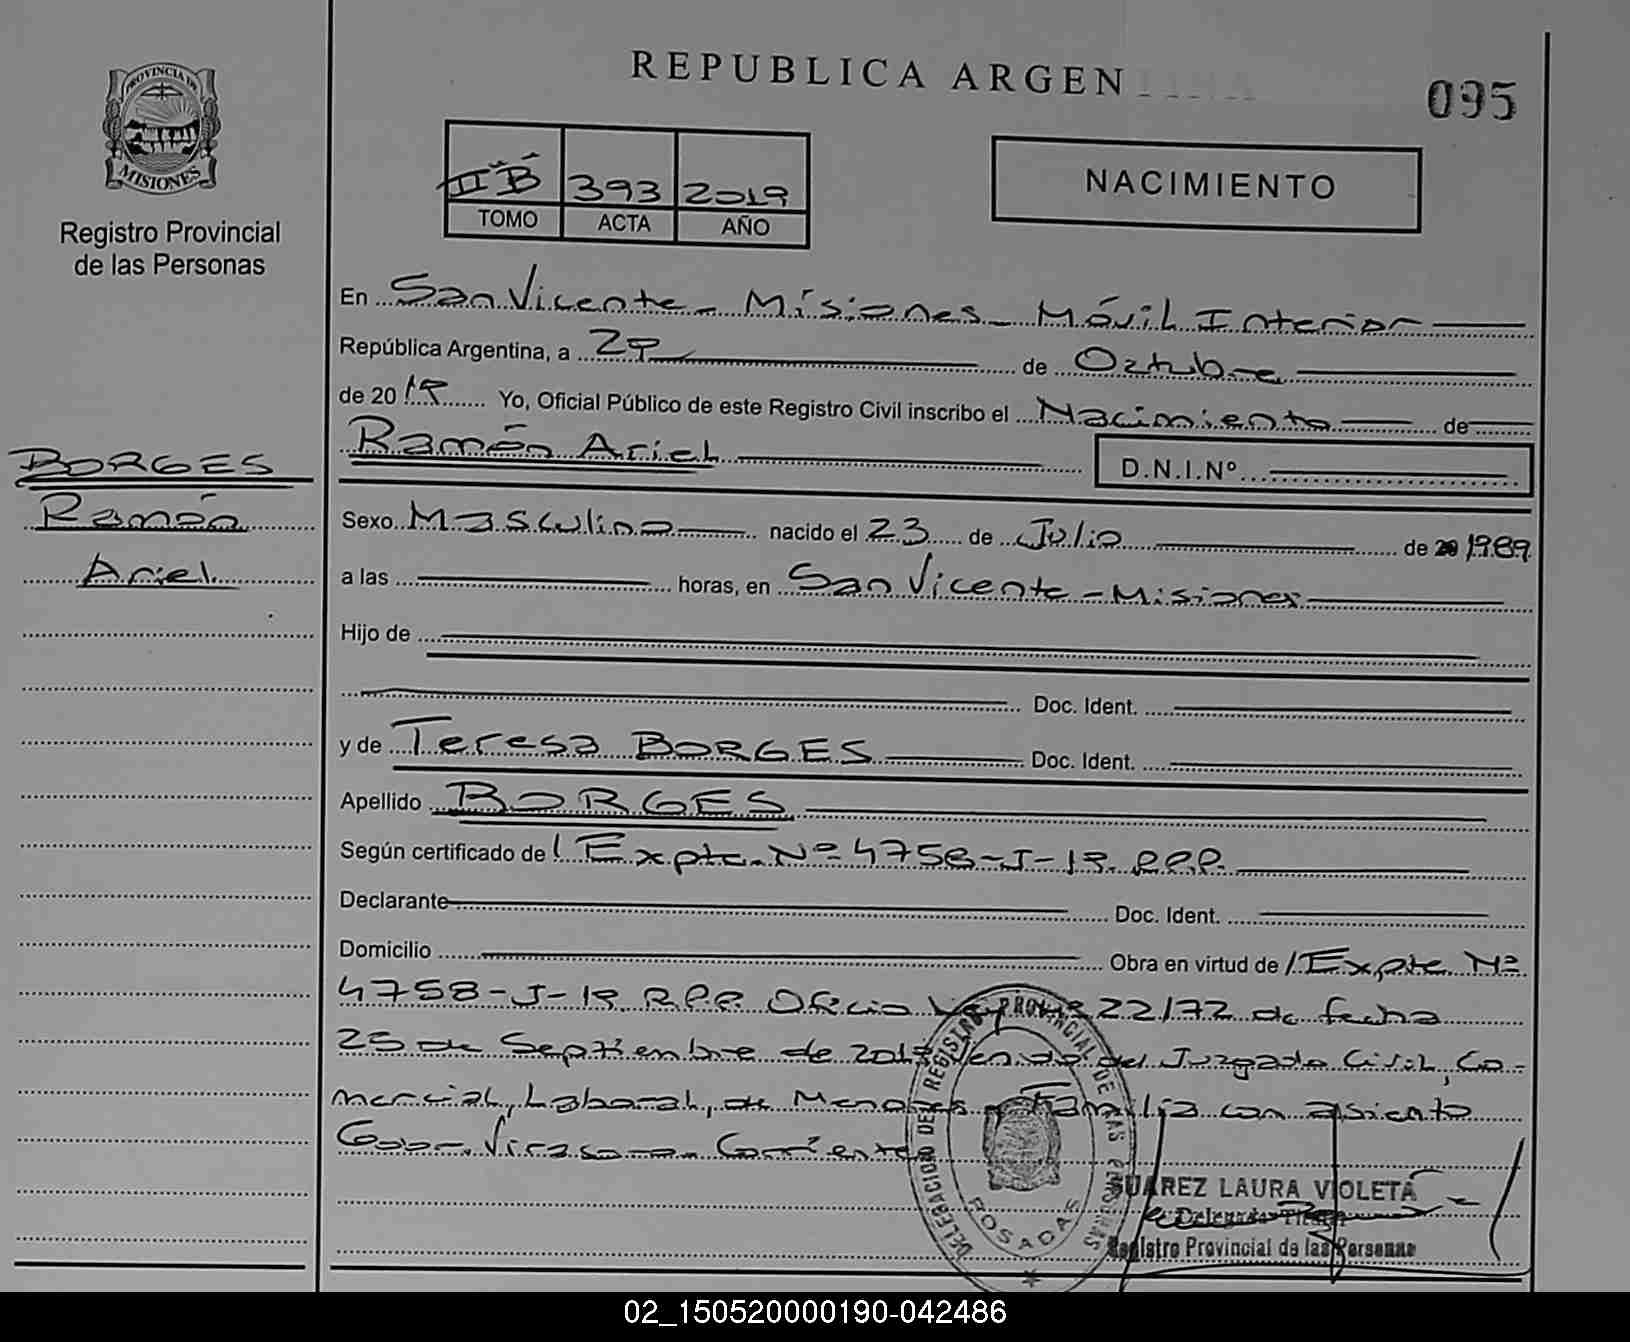 REPUBLICA ARGEN
095
PROVINCIA DE
MISIONES
Registro Provincial
de las Personas
II B 393 2019
TOMO ACTA AÑO
NACIMIENTO
En San Vicente - Misiones - Móvil Interior
República Argentina, a 29 de Octubre
de 2019 Yo, Oficial Público de este Registro Civil inscribo el Nacimiento de
Ramón Ariel D.N.I.Nº
BORGES
Ramón
Ariel
Sexo Masculino nacido el 23 de Julio de 20 1989
a las horas, en San Vicente - Misiones
Hijo de
Doc. Ident.
y de Teresa BORGES Doc. Ident.
Apellido BORGES
Según certificado de / Expte. Nº 4758-J-19. R.P.P.
Declarante Doc. Ident.
Domicilio Obra en virtud de / Expte Nº
4758-J-19. R.P.P. Oficio 22/72 de fecha
25 de Septiembre de del Juzgado Civil, Co-
mercial, Laboral, de Menores y Familia con asiento
Gobr. Virasoro. Corrientes
DELEGACION DEL REGISTRO PROVINCIAL DE LAS PERSONAS
POSADAS
SUAREZ LAURA VIOLETA
Delegada Titular
Registro Provincial de las Personas
02_150520000190-042486